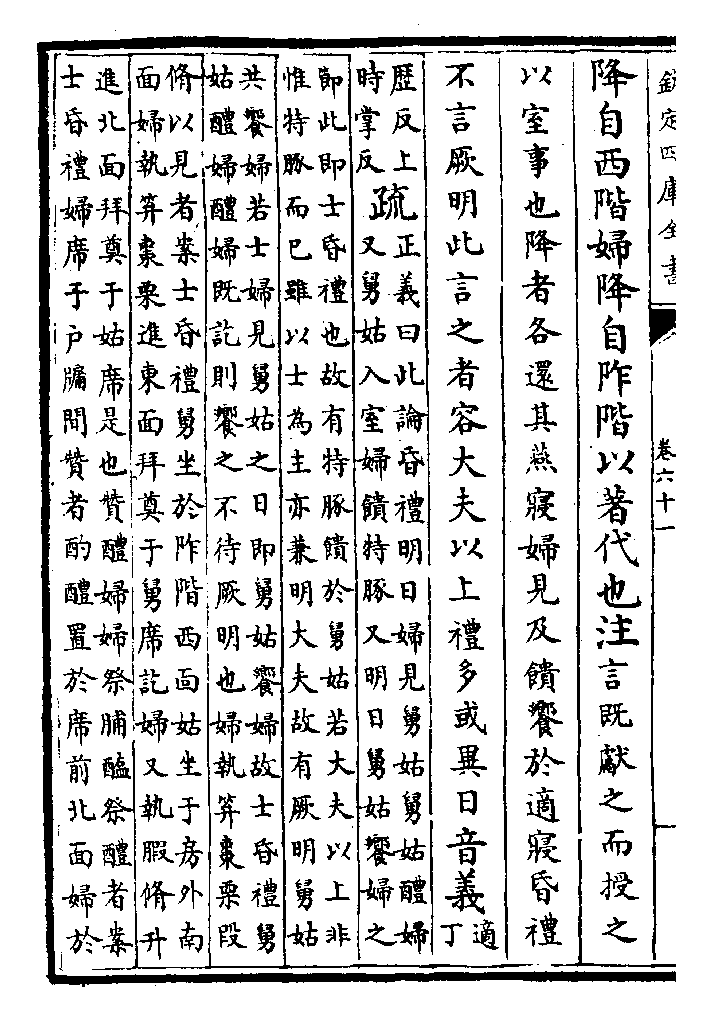 欽定四庫全書
卷六十一
降自西階婦降自阼階以著代也注言既獻之而授之
以室事也降者各還其燕寢婦見及饋饗於適寢昏禮
不言厥明此言之者容大夫以上禮多或異日音義適丁
歷反上時掌反疏正義曰此論昏禮明日婦見舅姑舅姑醴婦又舅姑入室婦饋特豚又明日舅姑饗婦之
節此即士昏禮也故有特豚饋於舅姑若大夫以上非
惟特豚而已雖以士為主亦兼明大夫故有厥明舅姑
共饗婦若士婦見舅姑之日即舅姑饗婦故士昏禮舅
姑醴婦醴婦既訖則饗之不待厥明也婦執笲棗栗段
脩以見者案士昏禮舅坐於阼階西面姑坐于房外南
面婦執笲棗栗進東面拜奠于舅席訖婦又執腶脩升
進北面拜奠于姑席是也贊醴婦婦祭脯醢祭醴者案
士昏禮婦席于戶牖間贊者酌醴置於席前北面婦於